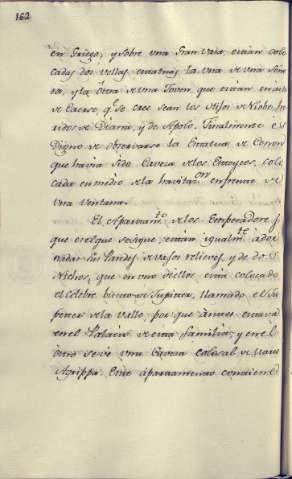 162
en Griego, y sobre una Gran Vasa, están colo-
cadas dos vellas estatuas, la una de una Seño-
ra, y la otra de una Joven, que están en acto
de Caerse, q.e se cree sean los Hijos de Niobe, he-
ridos de Diana, y de Apolo. Finalmente es
Digno de observarse la Estatua de
que havia sido Caveza de los colo-
cada en medio de la havitac.on enfrente de
una Ventana.
El Apartam.to de los Emperadores,
que es el que se sigue, están igualm.te ador-
nadas las Paredes de vasos relieves, y de dos
Nichos, que en uno de llos está colocado
el Celebre busto de Jupiter, llamado, el Ju-
piter de la Valle, por que antes estava
en el Palacio de esta familia; y en el
otro se ve una Caveza colosal de Marco
Agrippa. Este apartamento contiene